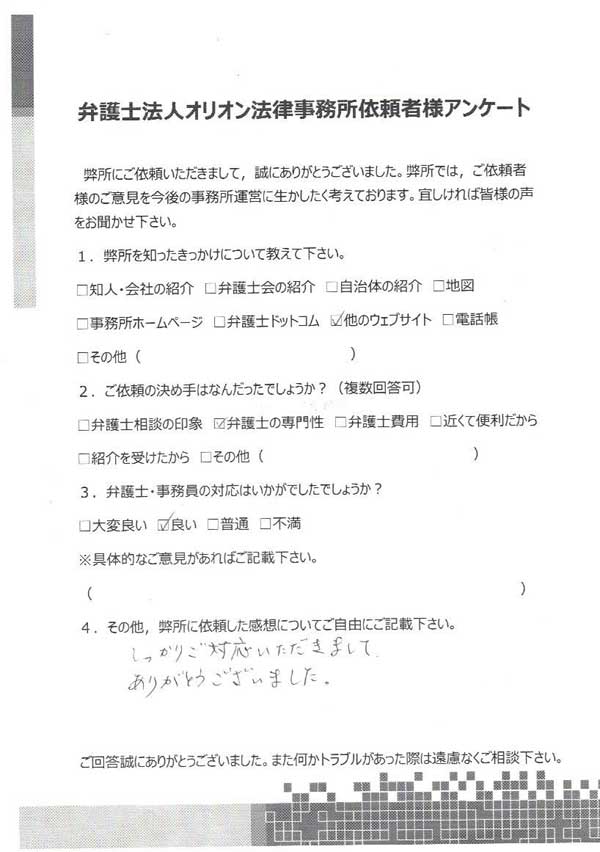 弁護士法人オリオン法律事務所依頼者様アンケート
弊所にご依頼いただきまして，誠にありがとうございました。弊所では，ご依頼者
様のご意見を今後の事務所運営に生かしたく考えております。宜しければ皆様の声
をお聞かせ下さい。
１．弊所を知ったきっかけについて教えて下さい。
□知人・会社の紹介 □弁護士会の紹介 □自治体の紹介 □地図
□事務所ホームページ □弁護士ドットコム ☑他のウェブサイト □電話帳
□その他（ ）
２．ご依頼の決め手はなんだったでしょうか？（複数回答可）
□弁護士相談の印象 ☑弁護士の専門性 □弁護士費用 □近くて便利だから
□紹介を受けたから □その他（ ）
３．弁護士・事務員の対応はいかがでしたでしょうか？
□大変良い ☑良い □普通 □不満
※具体的なご意見があればご記載下さい。
（ ）
４．その他，弊所に依頼した感想についてご自由にご記載下さい。
しっかりご対応いただきまして、
ありがとうございました。
ご回答誠にありがとうございました。また何かトラブルがあった際は遠慮なくご相談下さい。